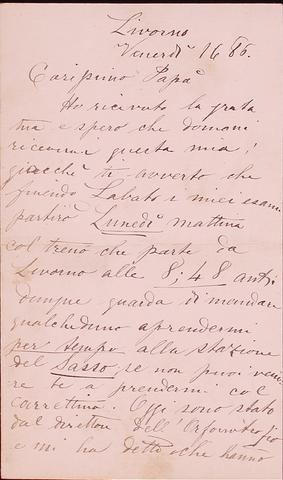 Livorno
Venerdì 16 86.
Carissimo Papà
Ho ricevuto la grata
tua e spero che domani
riceverai questa mia!
giacchè ti avverto che
finendo Sabato i miei esami
partirò Lunedì mattina
col treno che parte da
Livorno alle 8,48 ant
dunque guarda di mandare
qualcheduno a prendermi
per tempo alla stazione
del Sasso, se non puoi veni
re te a prendermi col
carrettino. Oggi sono stato
dal direttore dell'
e mi ha detto che hanno